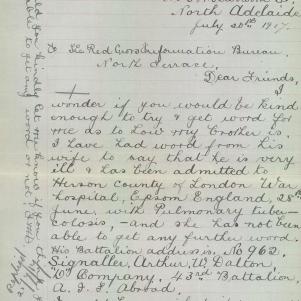 North Adelaide
July 20th 1917.
To The Red Cross Information Bureau
North Terrace.
Dear Friends,
I
wonder if you would be kind
enough to try & get word for
me as to how my brother is.
I have had word from his
wife to say that he is very
ill & has been admitted to
county of London War
hospital, Epsom England, 28th
June, with Pulmonary tuber-
colosis, - and she has not been
able to get any further word.
His Battalion address is, No 962,
Signaller, Arthur, W. Dalton,
Company, 43rd Battalion
A. I. F. Abroad.
kindly let me know if you
able to get any word or not